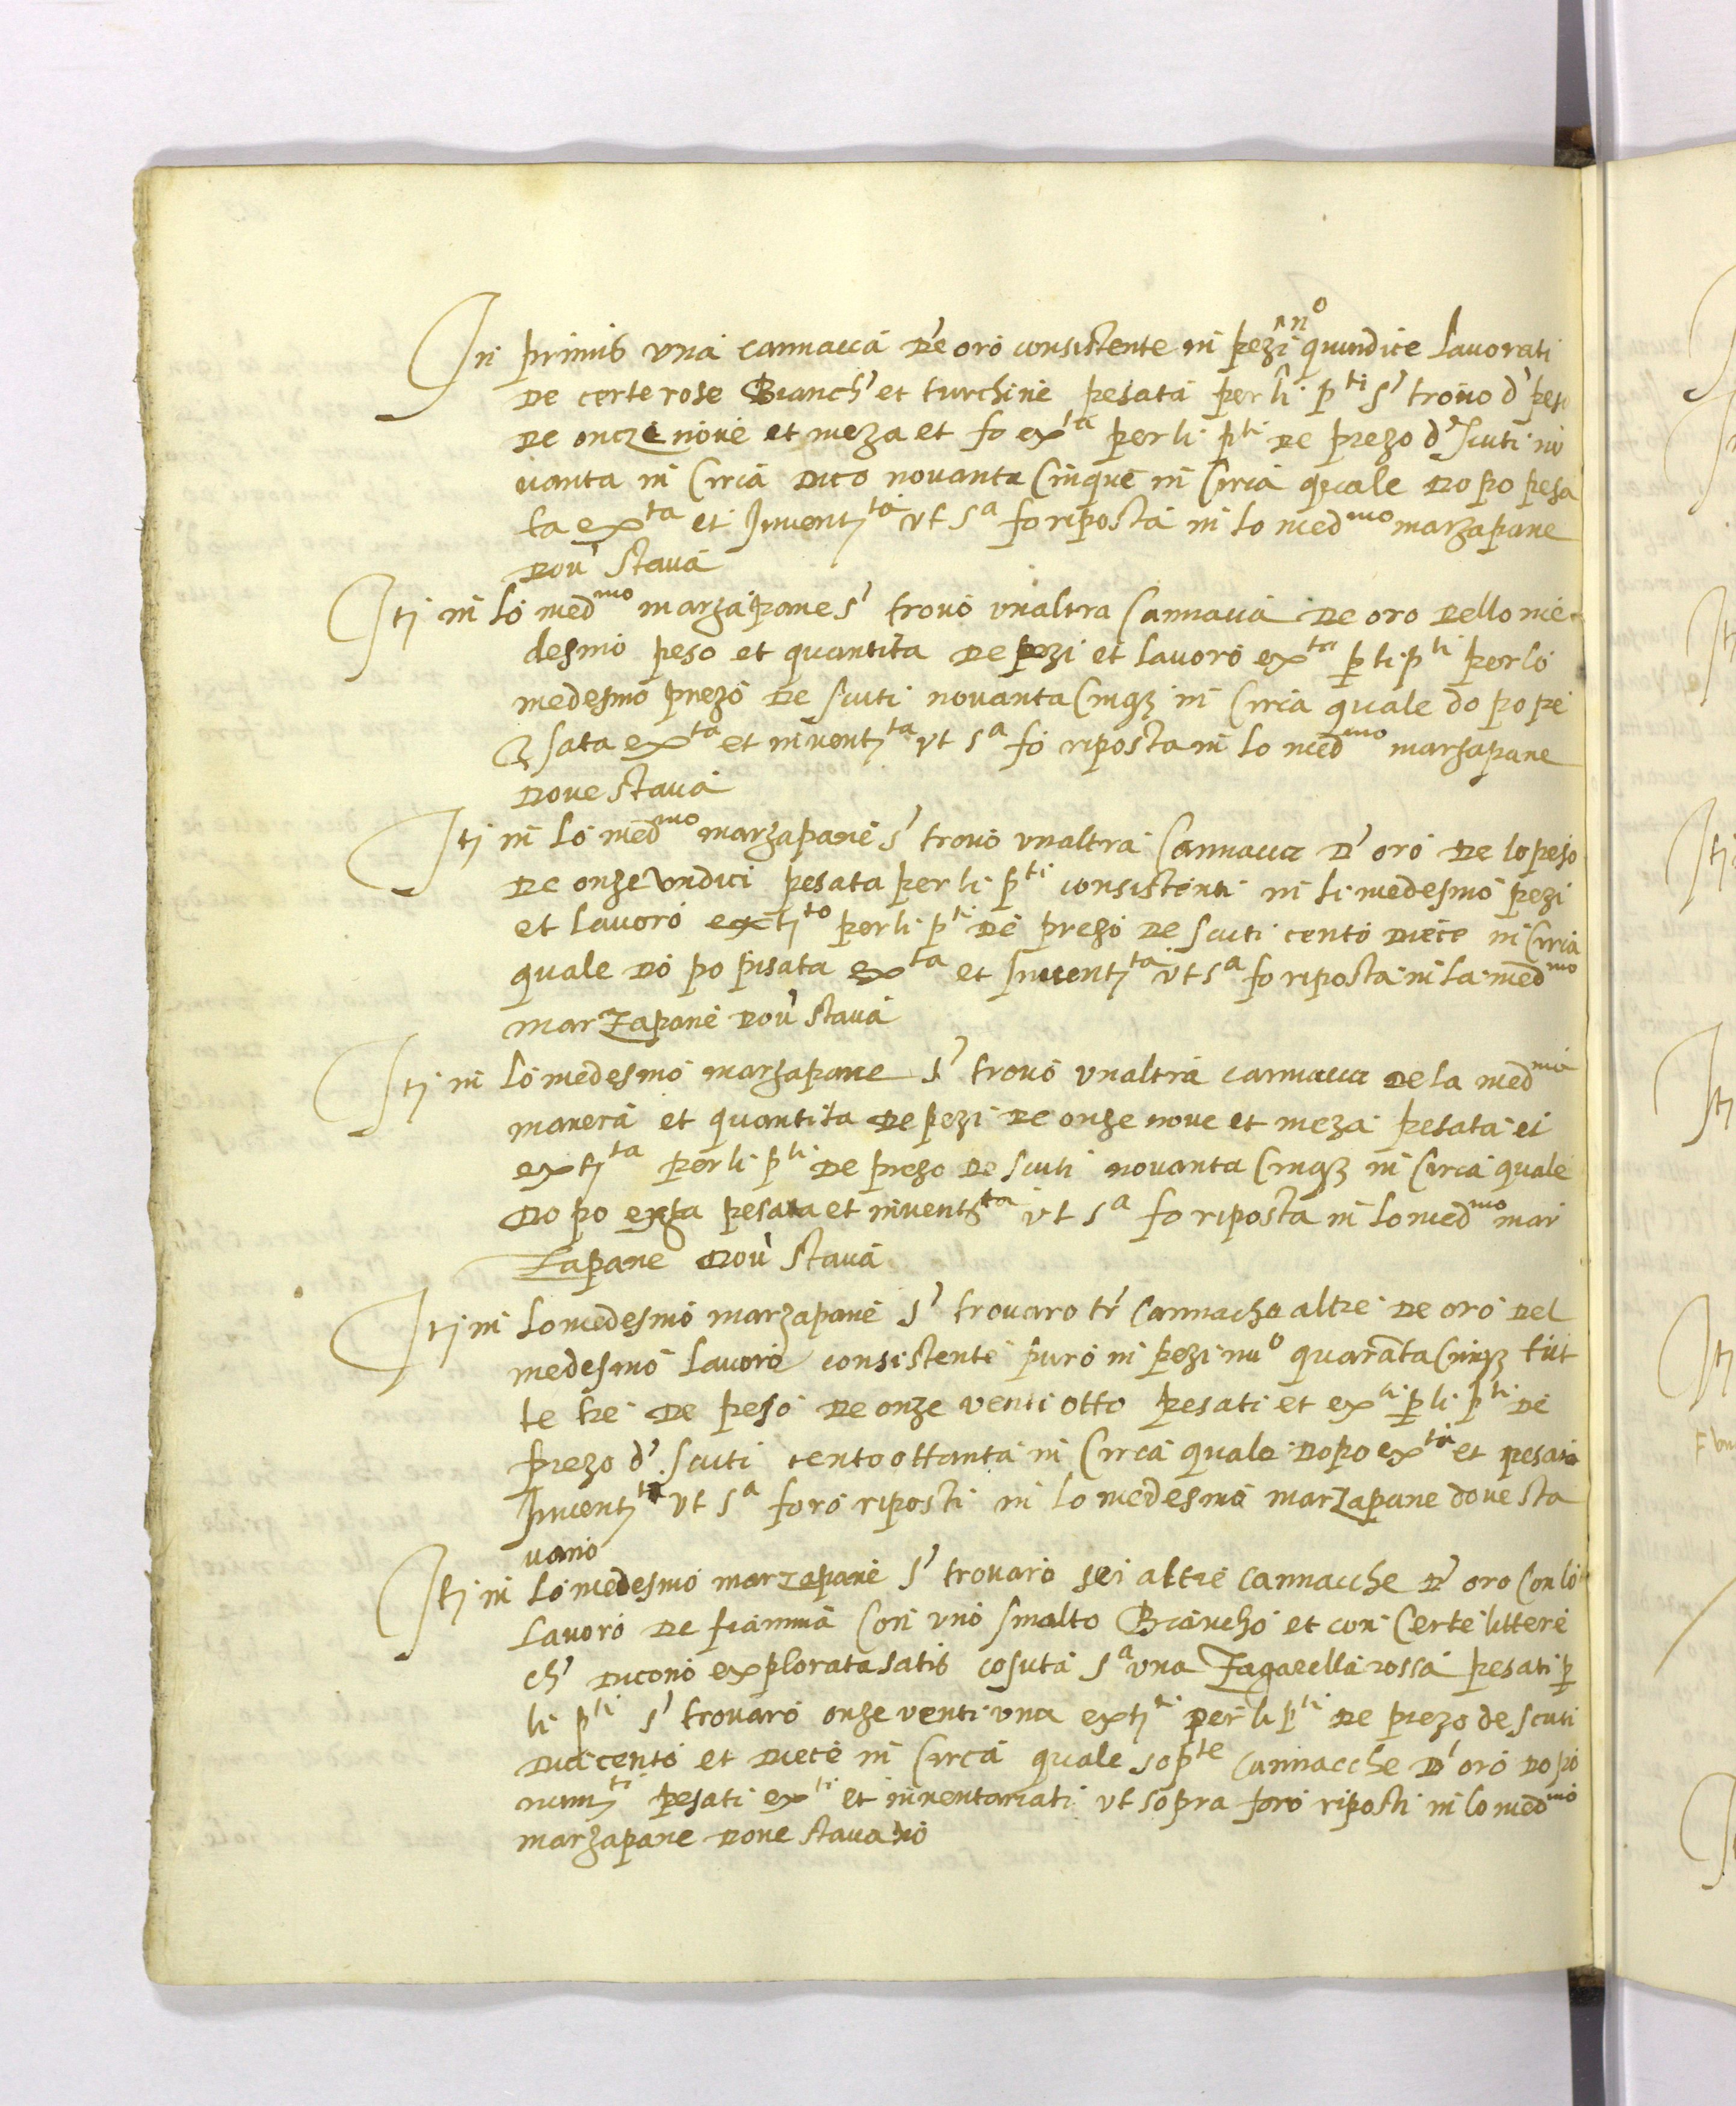 In primis una cannacca de oro consistente in pezi n^o quindice lavorati
de certe rose Bianch' et turchine pesata per li p^ti s' trovo d' peso
de onze nove et meza et fo ex^ta per li p^ti de prezo d' scuti no
vanta in Circa dico novanta Cinque in Circa quale dopo pesa
ta ex^ta et Invent^ta ut s^a fo riposta in lo med^mo marzapane
dov' stava
Itj in lo med^mo marzapane s' trovo unaltra Cannacca de oro dello me
desmo peso et quantita de pezi et lavoro ex^ta p li p^ti per lo
medesmo prezo de scuti novanta Cinq3 in Circa quale dopo pe
sata ex^ta et invent^ta ut s^a fo riposta in lo med^mo marzapane
dove stava
Itj in lo med^mo marzapane s' trovo unaltra Cannacca d' oro de lo peso
de onze undici pesata per li p^ti consistenti in li medesmo pezi
et lavoro extj^to per li p^ti de prezo de scuti cento diece in Circa
quale dopo pisata ex^ta et Invent^ta ut s^a fo riposta in la med^mo
marzapane dov' stava
Itj in lo medesmo marzapane s' trovo unaltra cannacca de la med^ma
manera et quantita de pezi de onze nove et meza pesata et
extj^ta per li p^ti de prezo de scuti novanta Cinq3 in Circa quale
dopo exta pesata et invent^ta ut s^a fo riposta in lo med^mo mar
zapane dov' stava
Itj in lo medesmo marzapane s' trovaro tr' Cannache altre de oro del
medesmo lavoro consistente puro in pezi nu^o quaranta Cinq3 tut
te tre de peso de onze venti otto pesati et ex^ti p li p^ti de
prezo d' scuti cento ottanta in Circa quale dopo ex^ta et pesata
Inventj^ta ut s^a foro riposti in lo medesmo marzapane dove sta
vano
Itj in lo medesmo marzapane s' trovaro sei altre cannacche d' oro Con lo
lavoro de fiamma Con uno smalto Biancho et con Certe littere
ch' dicono explorata satis cosuta s^a una zagarella rossa pesati p
li p^ti s' trovaro onze venti una extj^ti per li p^ti de prezo de scuti
ducento et diece in Circa quale sop^te cannacche d' oro dopo
numj^ti pesati ex^ti et inventariati ut sopra foro riposti in lo med^mo
marzapane dove stavano